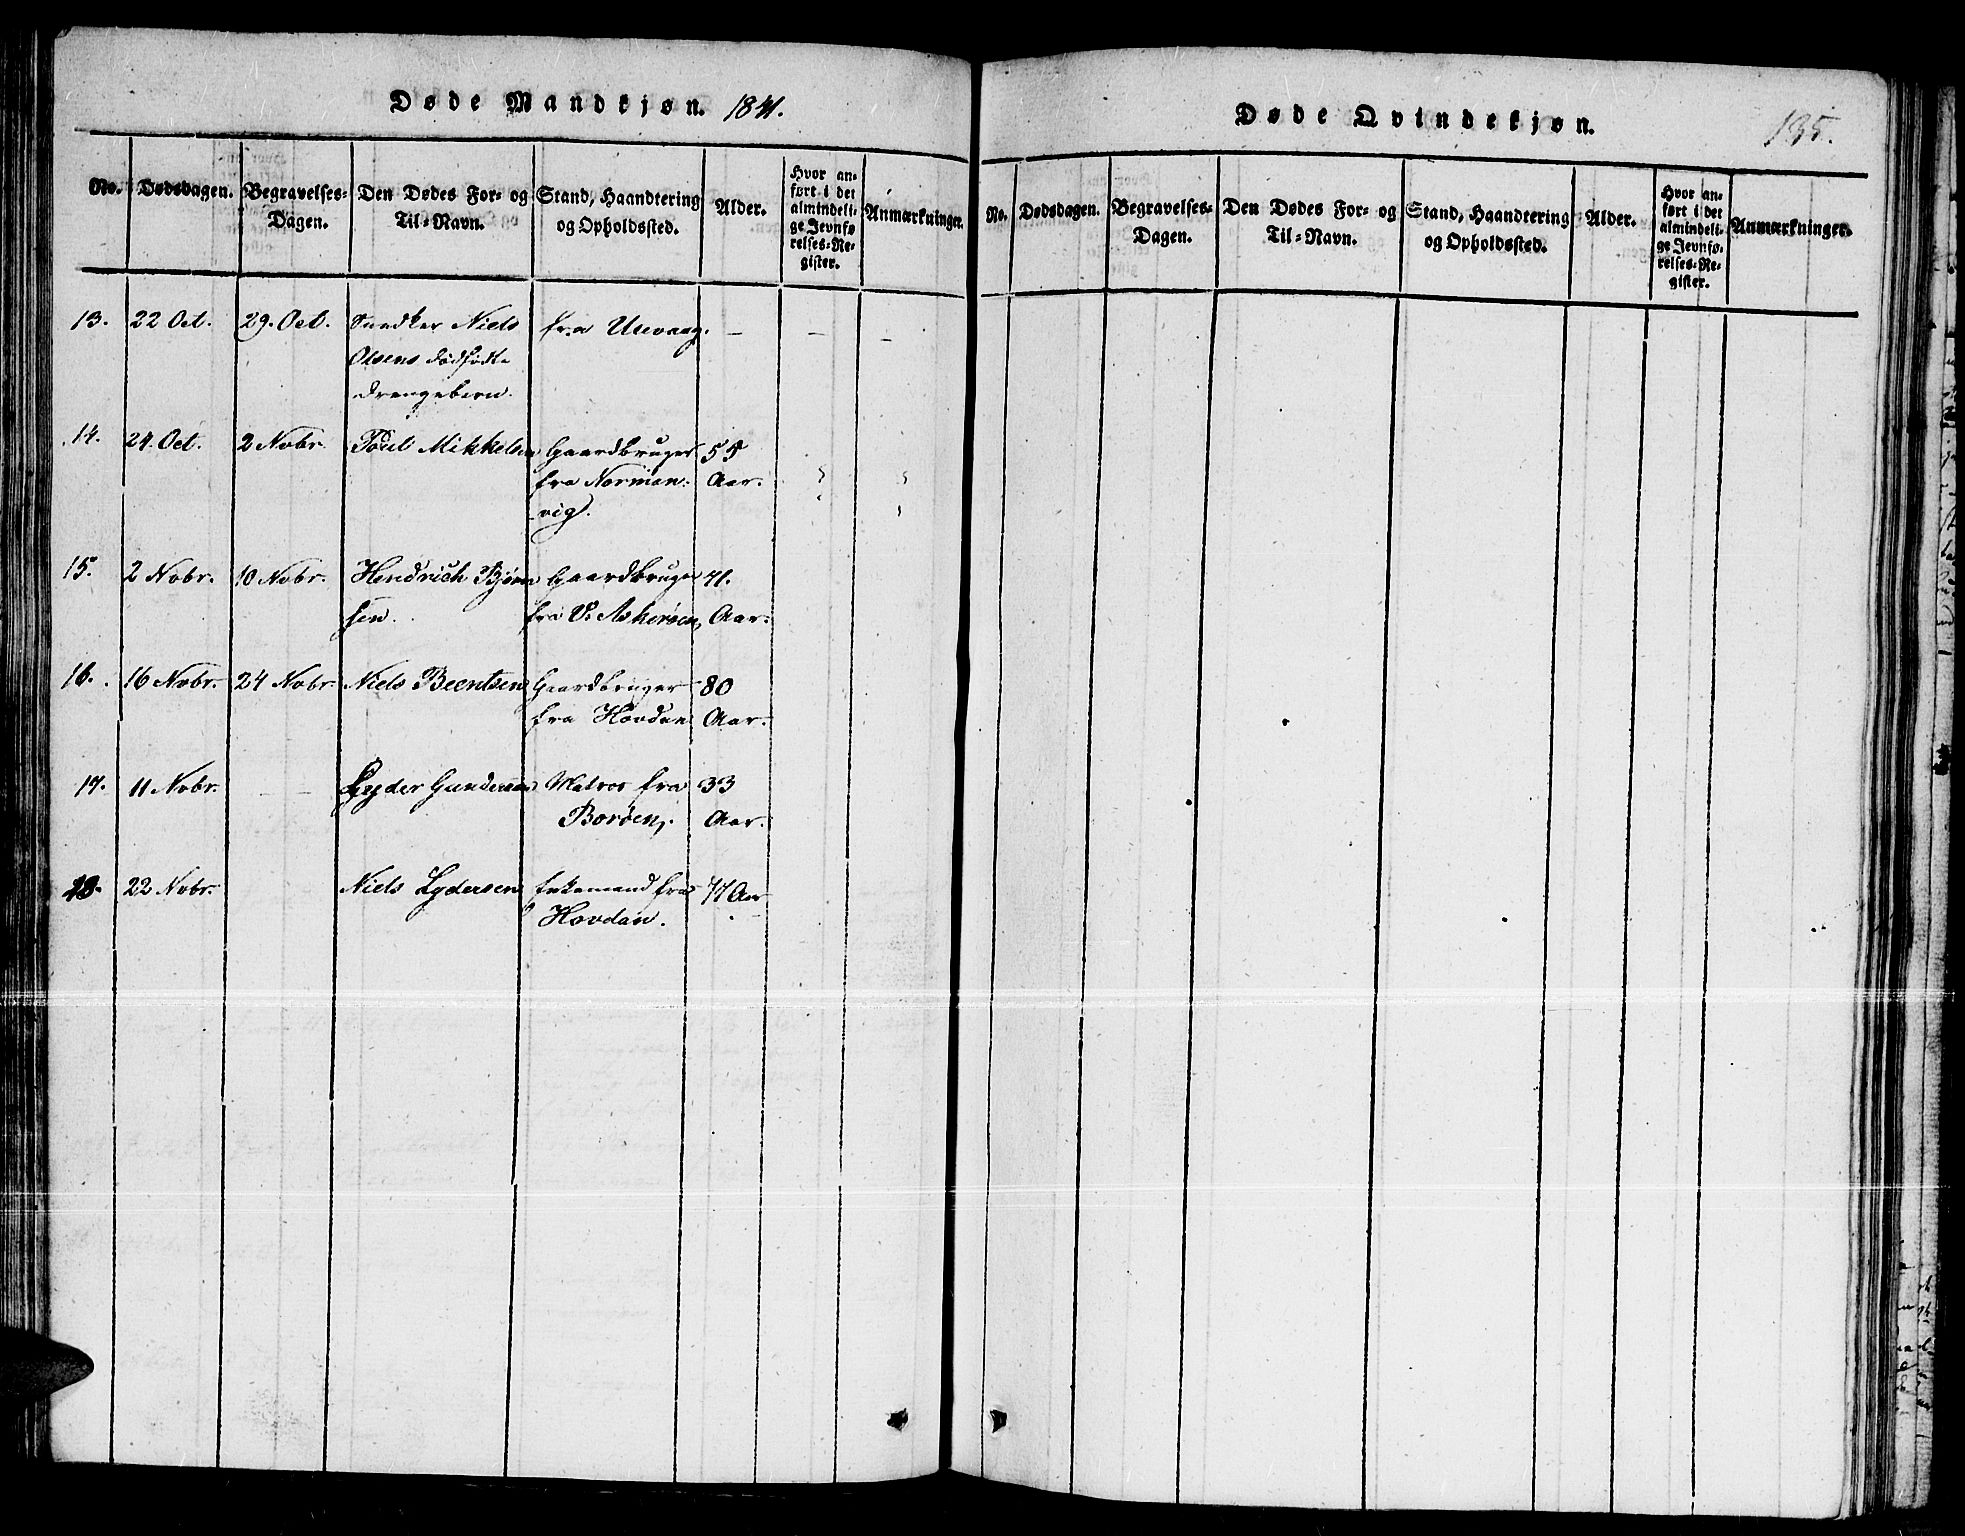 Døde Mandkjøn. 1841.
No. Dødsdagen. Begravelses-Dagen. Den Dødes For- og Til-Navn. Stand, Haandtering og Opholdssted. Alder. Hvor anført i det almindelige Jevnførelses-Register. Anmærkninger.
13. 22 Oct. 29. Oct. Snedker Niels fra Uvaag. - - -
Olsens dødfødte
Drengebarn.
14. 24. Oct. 2 Nobr. Poul Mikkelsen Gaardbruger 55
fra Norman- Aar.
vig.
15. 2 Nobr. 10 Nobr. Hendrich Bjørn Gaardbruger 71.
sen. fra V: Askerøen, Aar.
16. 16 Nobr. 24 Nobr. Niels Beentsen Gaardbruger 80
fra Hovdan Aar.
17. 11 Nobr. - - Lyder Gundersen Matros fra 33
Borøen. Aar.
18. 22 Nobr. Niels Lydersen Enkemand fra 77 Aar
Hovdan.
Døde Qvindekjøn.
135.
No. Dødsdagen. Begravelses-Dagen. Den Dødes For- og Til-Navn. Stand, Haandtering og Opholdssted. Alder. Hvor anført i det almindelige Jevnførelses-Register. Anmærkninger.